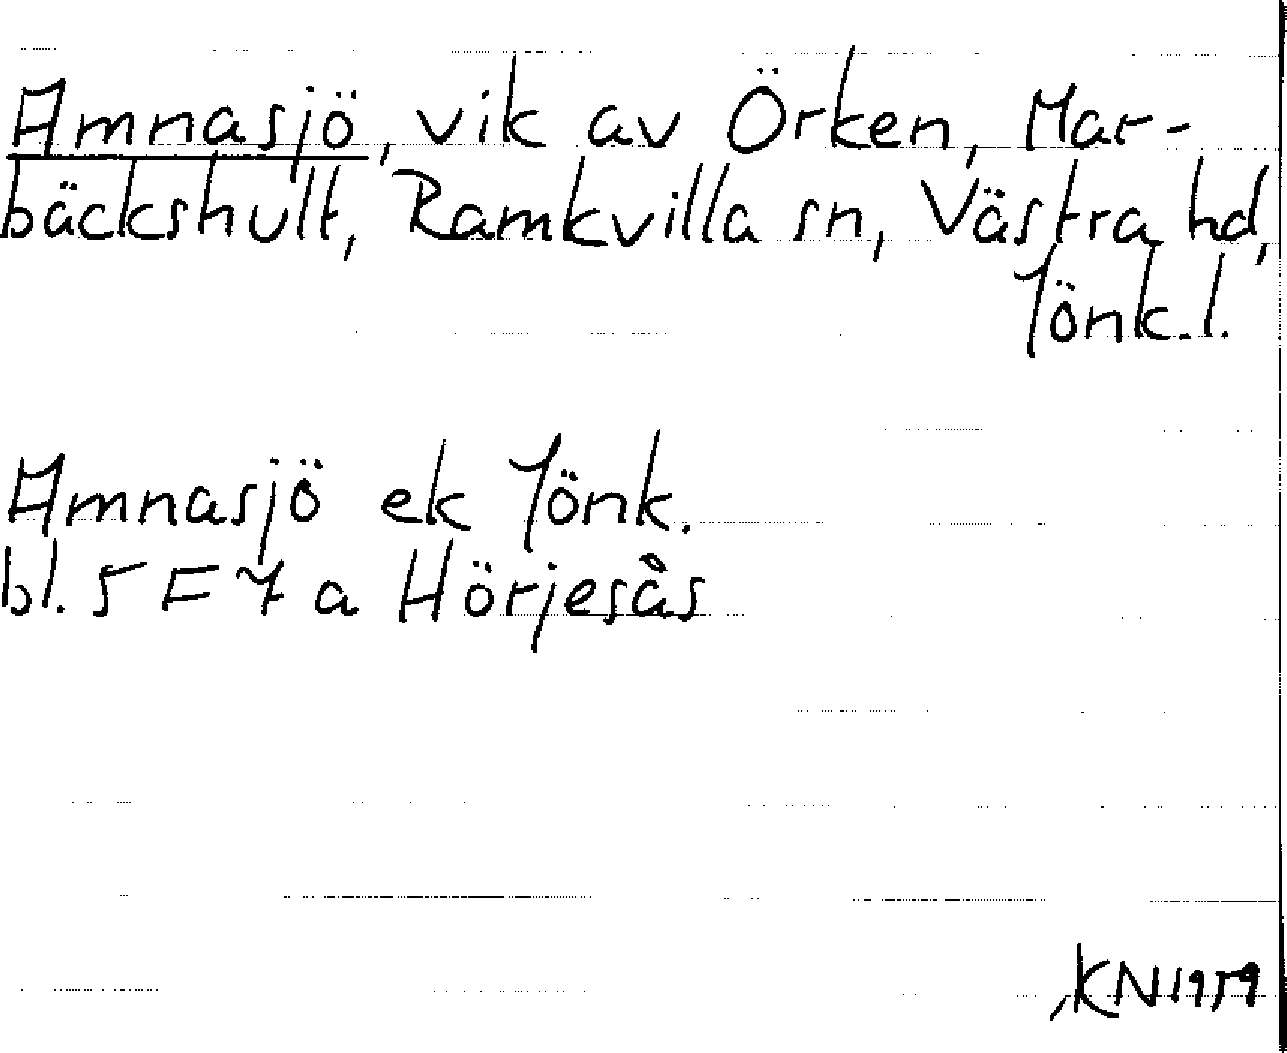 Amnasjö, vik av Örken, Mar-
bäckshult, Ramkvilla sn, Västra hd,
Jönk. l.
Amnasjö ek Jönk.
bl. 5 E 7 a Hörjesås
KN 1959